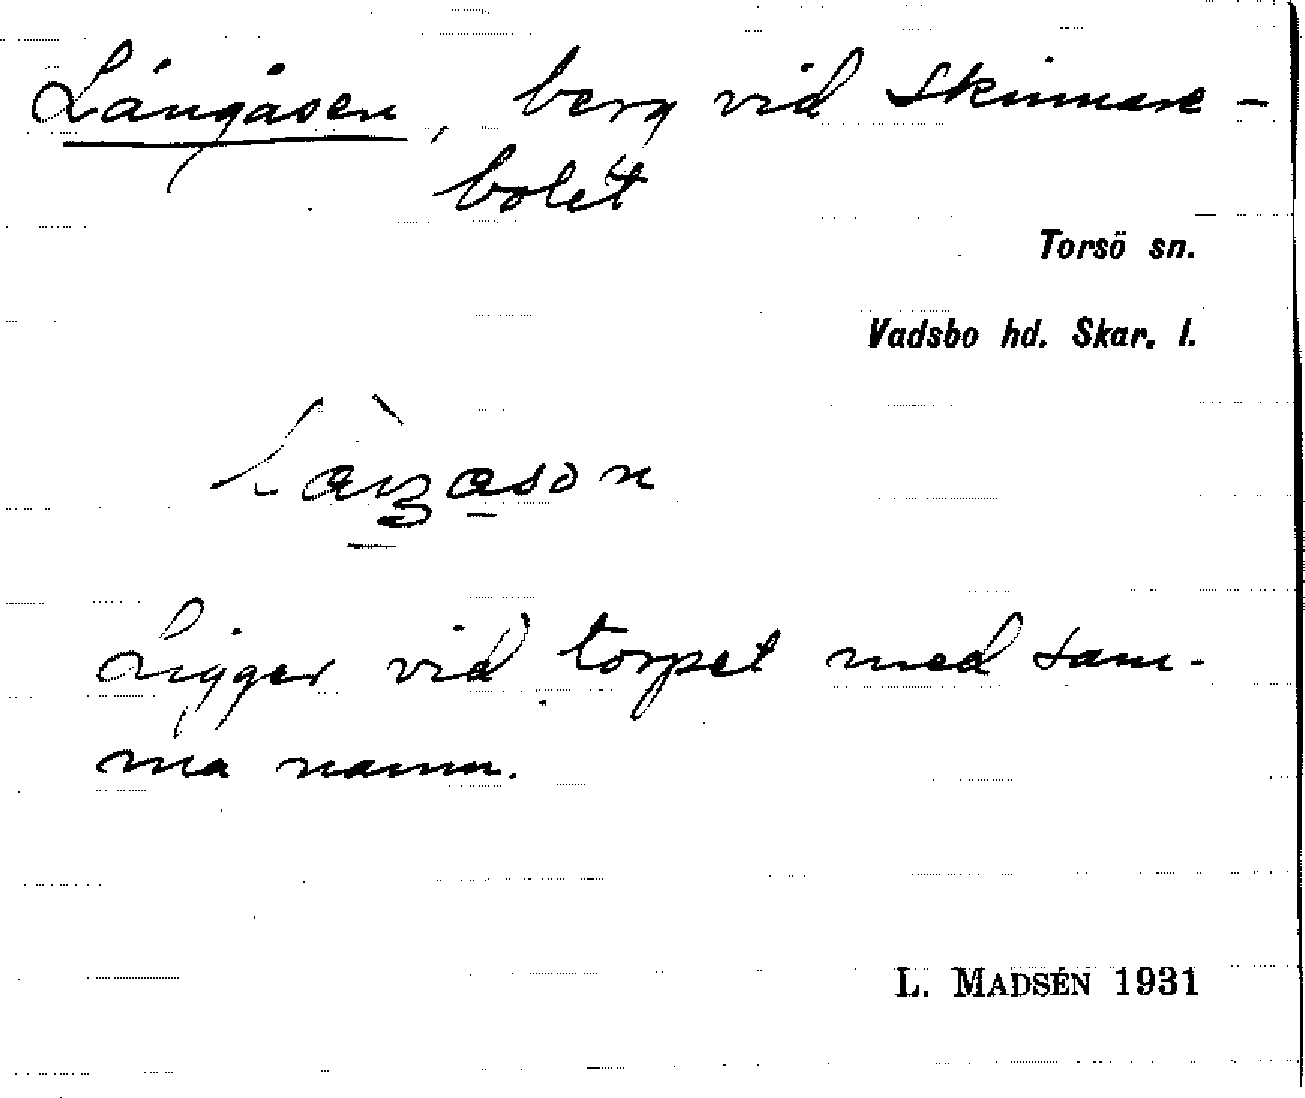 Långåsen, berg vid Skinnare-
bolet
Torsö sn.
Vadsbo hd. Skar. l.
Ligger vid torpet med sam-
ma namn.
L. MADSÉN 1931